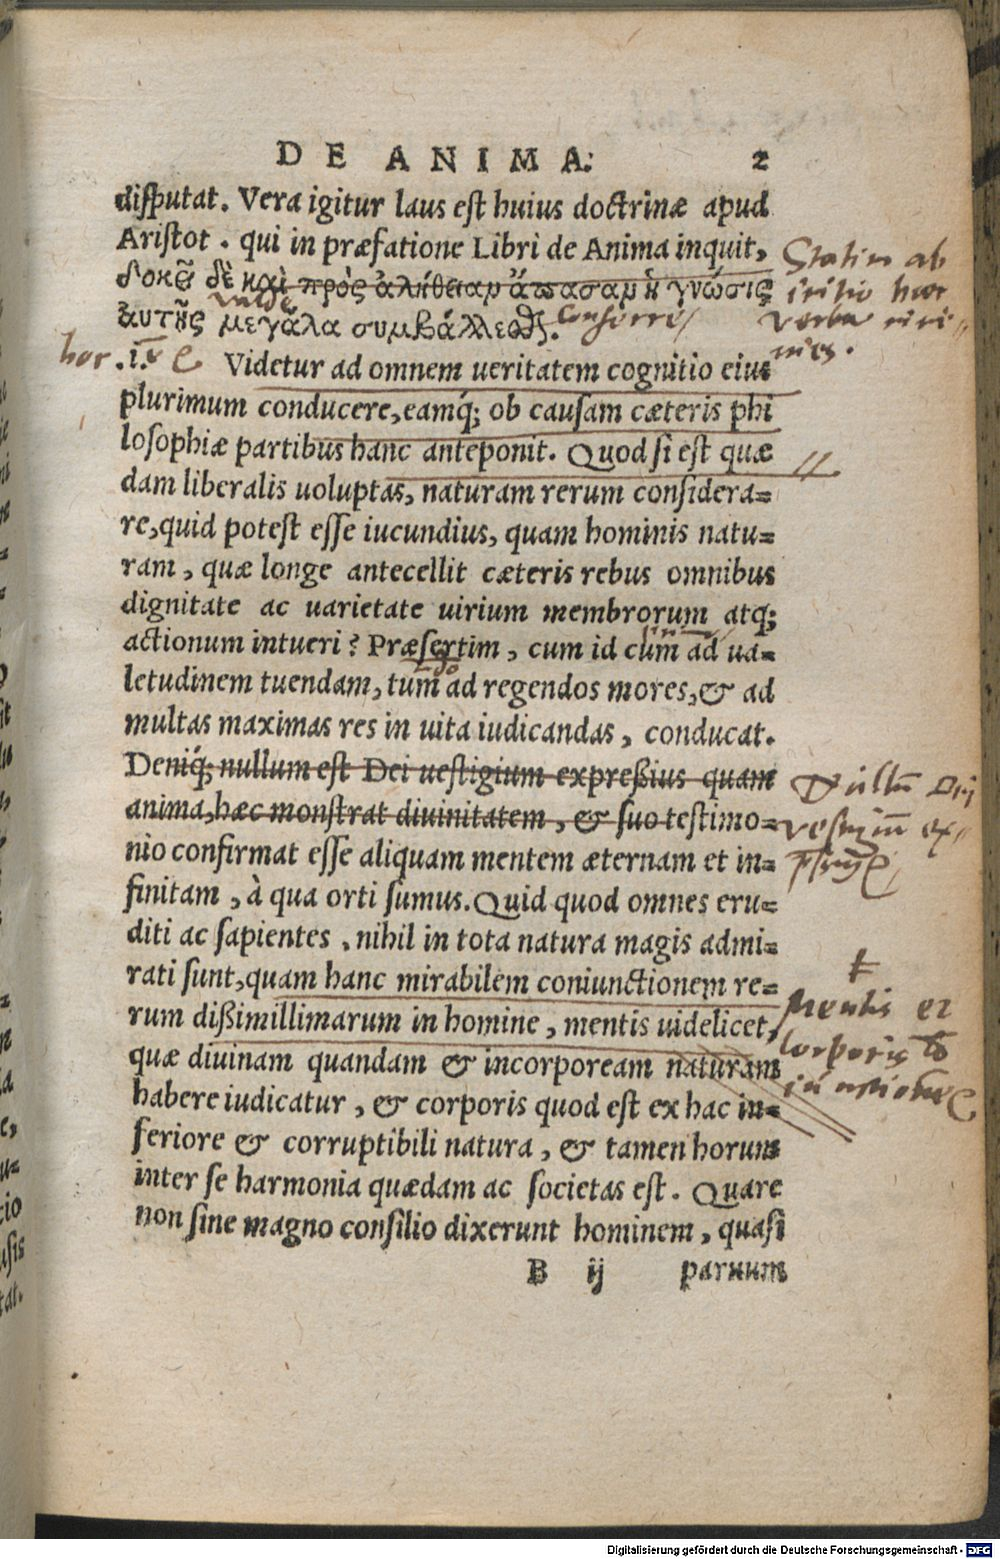 DE ANIMA. 2
disputat. Vera igitur laus est huius doctrinæ apud
Aristot. qui in præfatione Libri de Anima inquit,
δοκεῖ δὲ καὶ πρὸς ἀλήθειαν ἅπασαν ἡ γνῶσις
valde
ἀυτῆς μεγάλα συμβάλλεσθαι. conferre/
Statim ab
initio haec
verba inve-
nies.
hoc .i. Videtur ad omnem ueritatem cognitio eius
plurimum conducere, eamq́; ob causam cæteris phi
losophiæ partibus hanc anteponit. Quod si est quæ
dam liberalis uoluptas, naturam rerum considera=
re, quid potest esse iucundius, quam hominis natu=
ram, quæ longe antecellit cæteris rebus omnibus
dignitate ac uarietate uirium membrorum atq;
actionum intueri? Præsertim, cum id cum ad ua=
letudinem tuendam, tum ad regendos mores, & ad
multas maximas res in uita iudicandas, conducat.
Deniq́; nullum est Dei uestigium expreßius quam
anima, hæc monstrat diuinitatem, & suo testimo=
nio confirmat esse aliquam mentem æternam et in=
finitam, à qua orti sumus. Quid quod omnes eru=
diti ac sapientes, nihil in tota natura magis admi=
rati sunt, quam hanc mirabilem coniunctionem re=
rum dißimillimarum in homine, mentis uidelicet,
quæ diuinam quandam & incorpoream naturam
habere iudicatur, & corporis quod est ex hac in=
feriore & corruptibili natura, & tamen horum
inter se harmonia quædam ac societas est. Quare
non sine magno consilio dixerunt hominem, quasi
B ij paruum
Nullū Dei
vestigiū ex-
Mentis et
corporis cō
iunctione
Digitalisierung gefördert durch die Deutsche Forschungsgemeinschaft - DFG